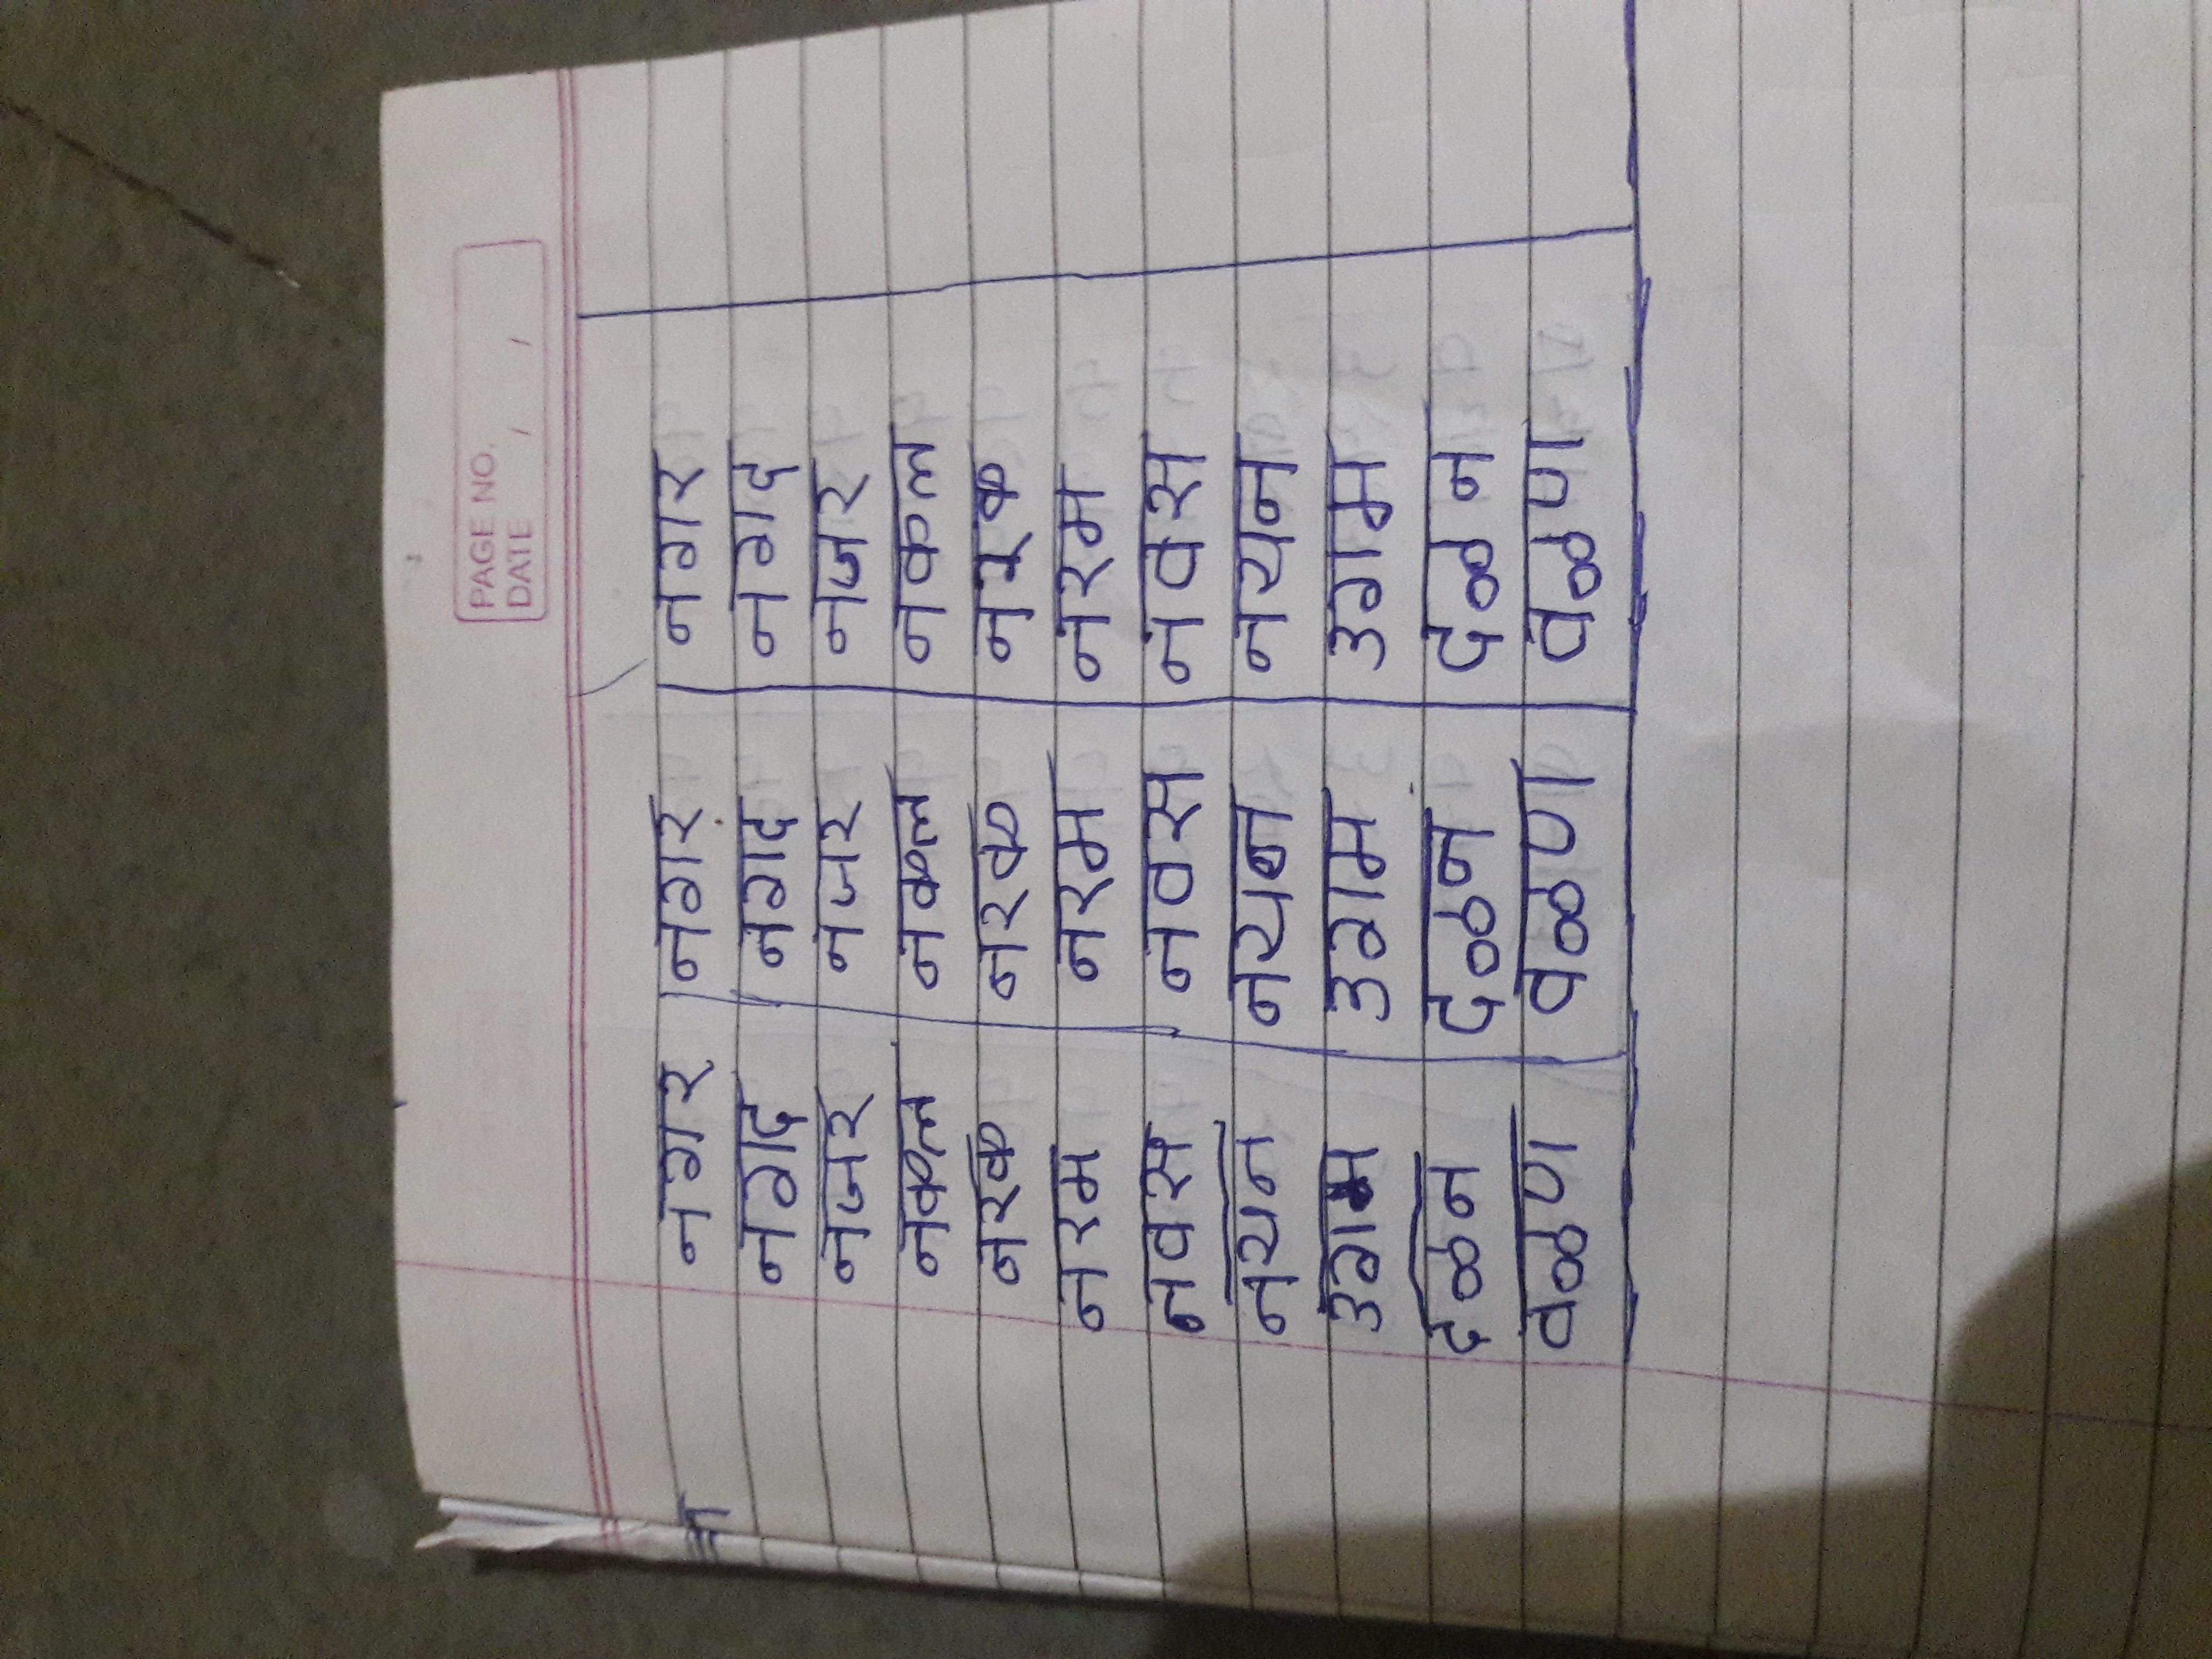 PAGE NO.
DATE / /
नगर नगर नगर
नगद नगद नगद
नजर नजर नजर
नकल नकल नकल
नरक नरक नरक
नरम नरम नरम
नवस नवस नवस
नयन नयन नयन
उगम उगम उगम
दळन दळन दळन
वळण वळण वळण